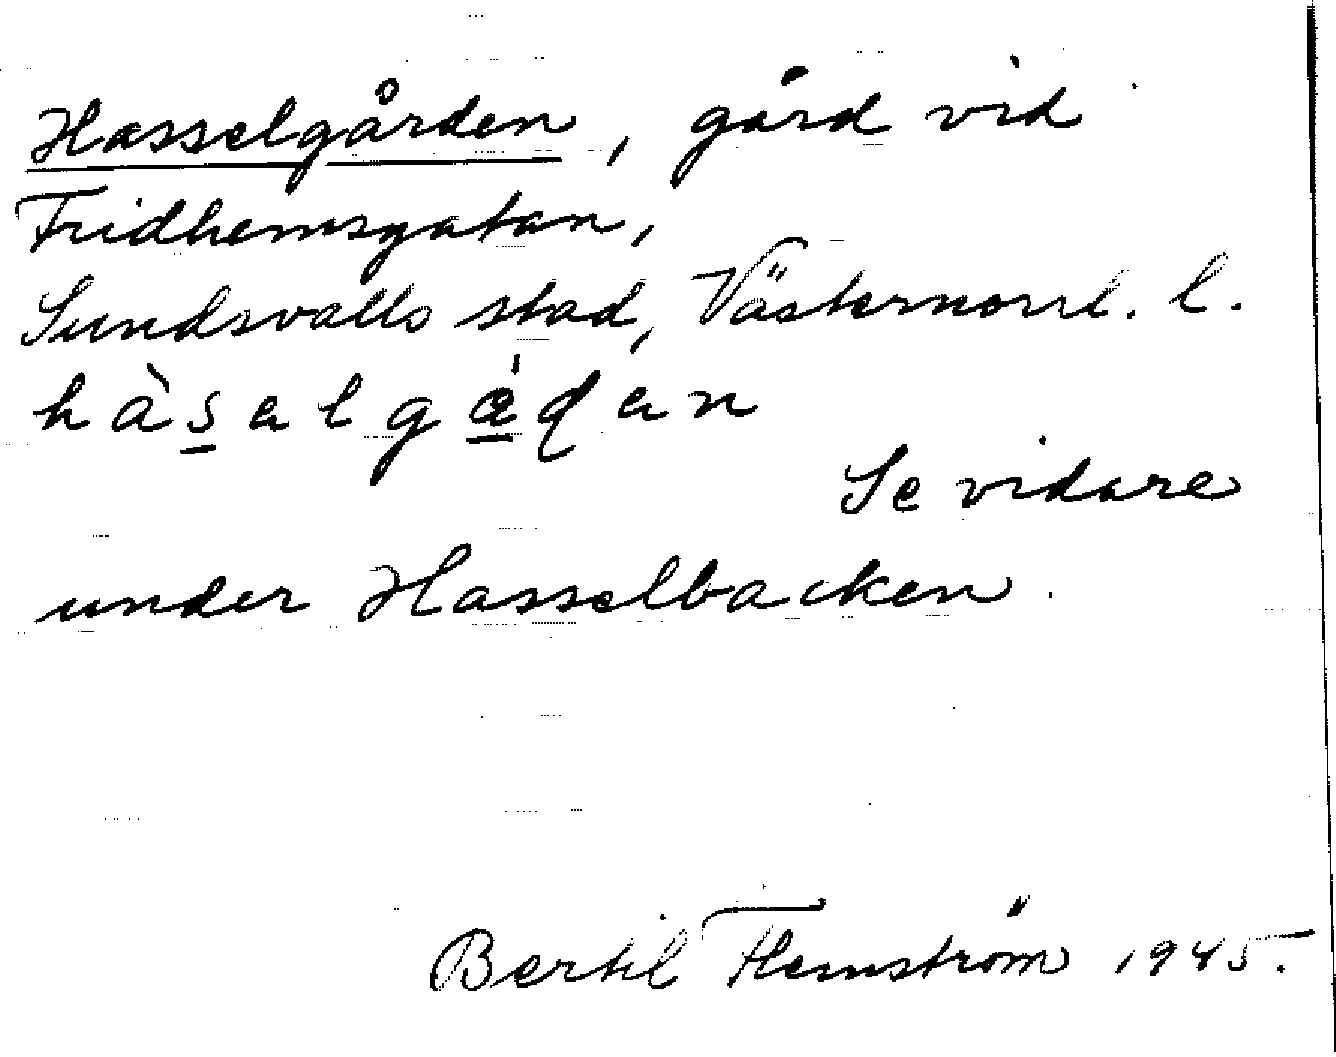 Hasselgården, gård vid
Fridhemsgatan,
Sundsvalls stad, Västernorrl. l.
Se vidare
under Hasselbacken.
Bertil Flemström 1945.